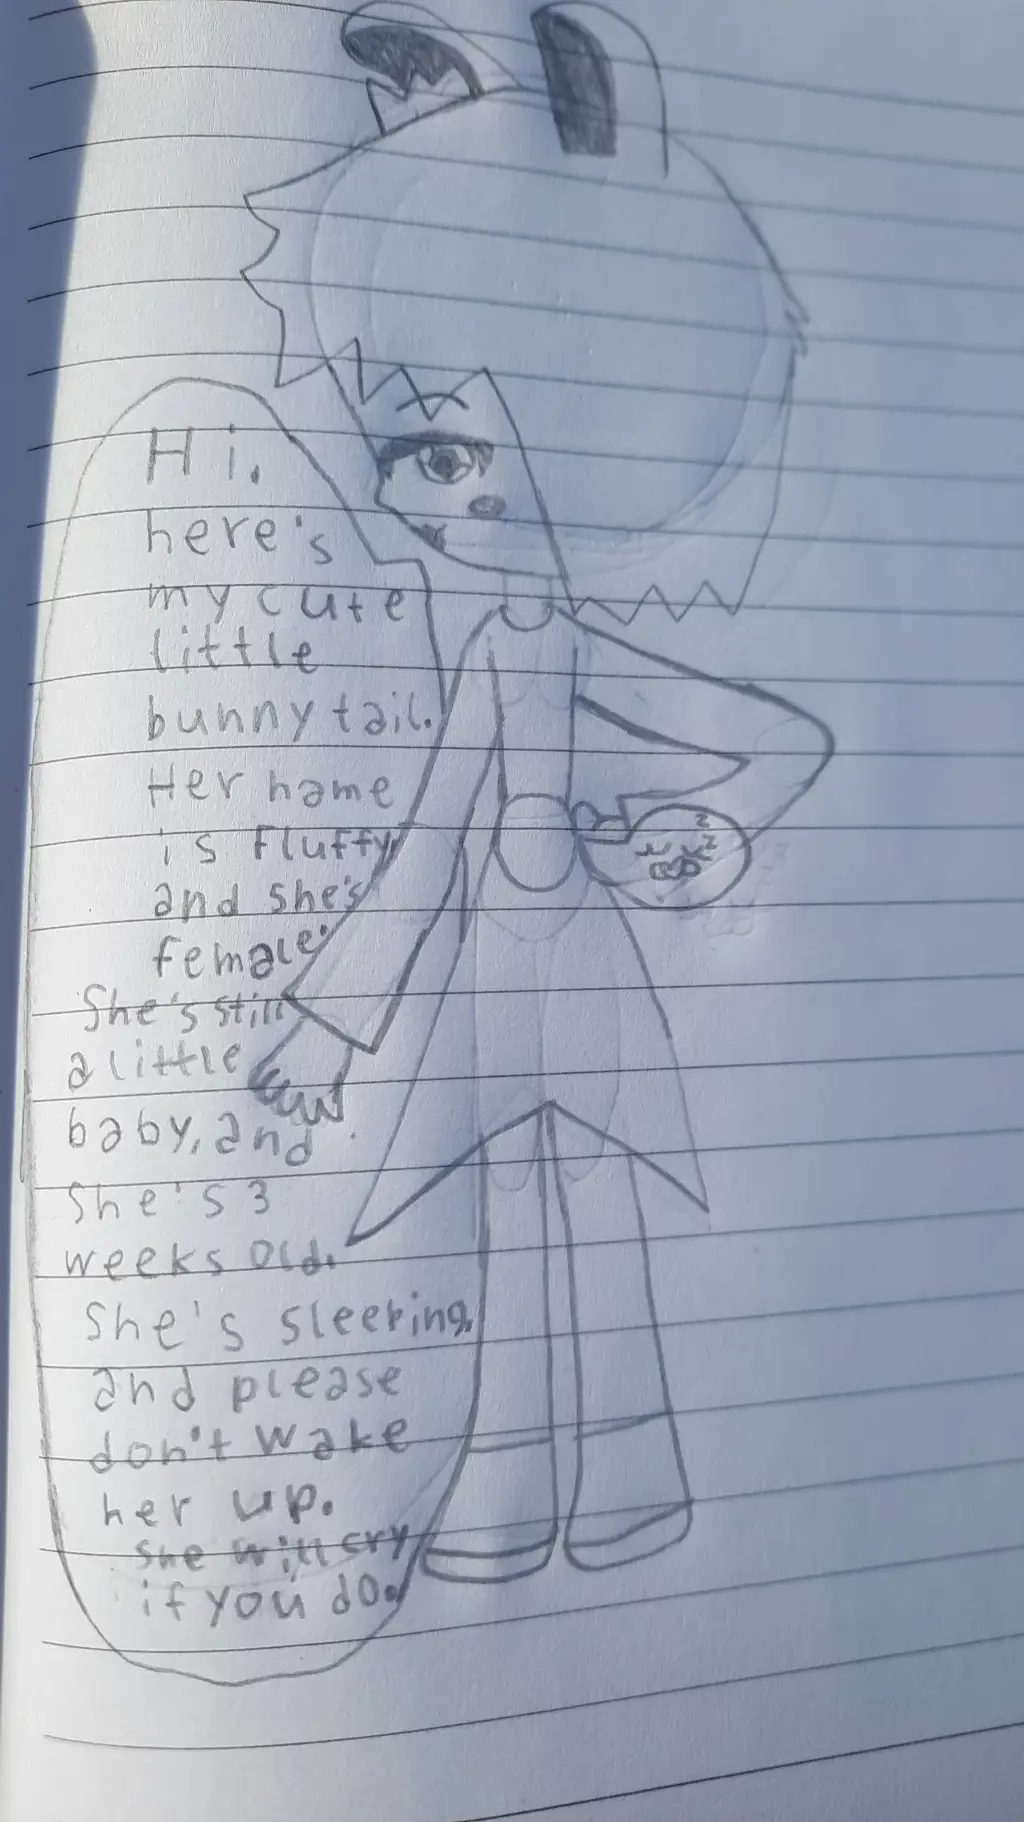 Hi.
here's
my cute
little
bunny tail.
Her name
is Fluffy
and she's
female.
She's still
a little
baby, and
she's 3
weeks old.
She's sleeping,
and please
don't wake
her up.
she will cry
if you do.
z
z